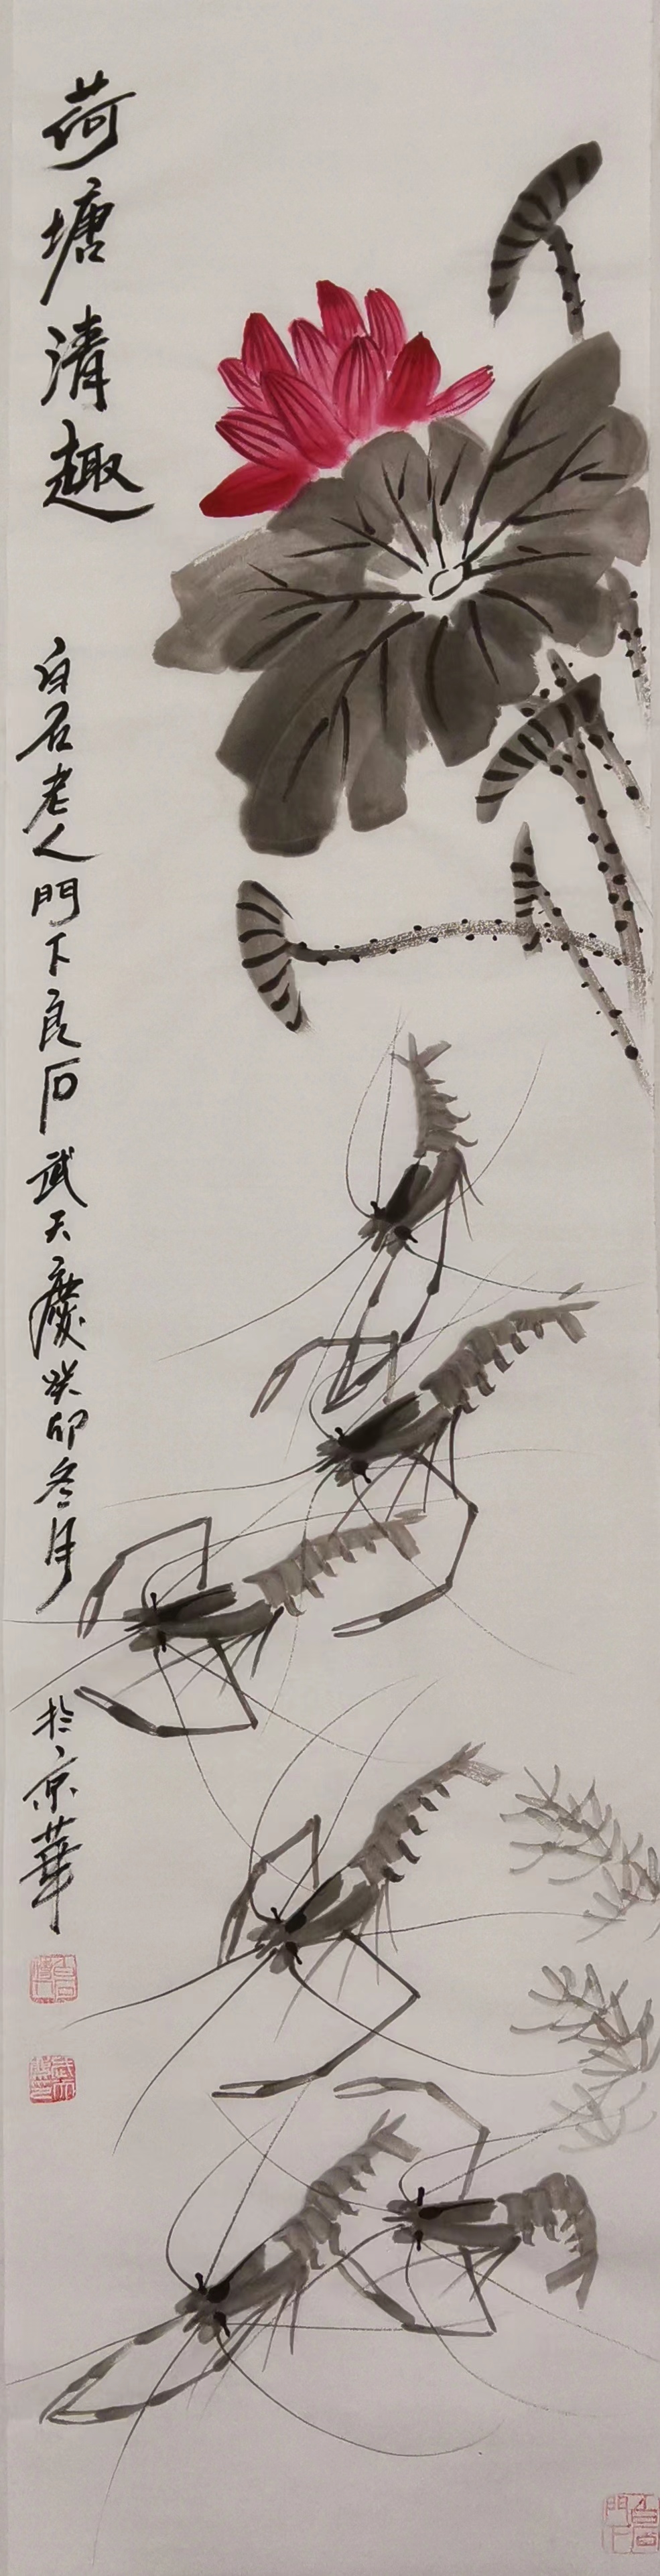 荷塘清趣
白石老人門下良石武天慶癸卯冬月
於京華